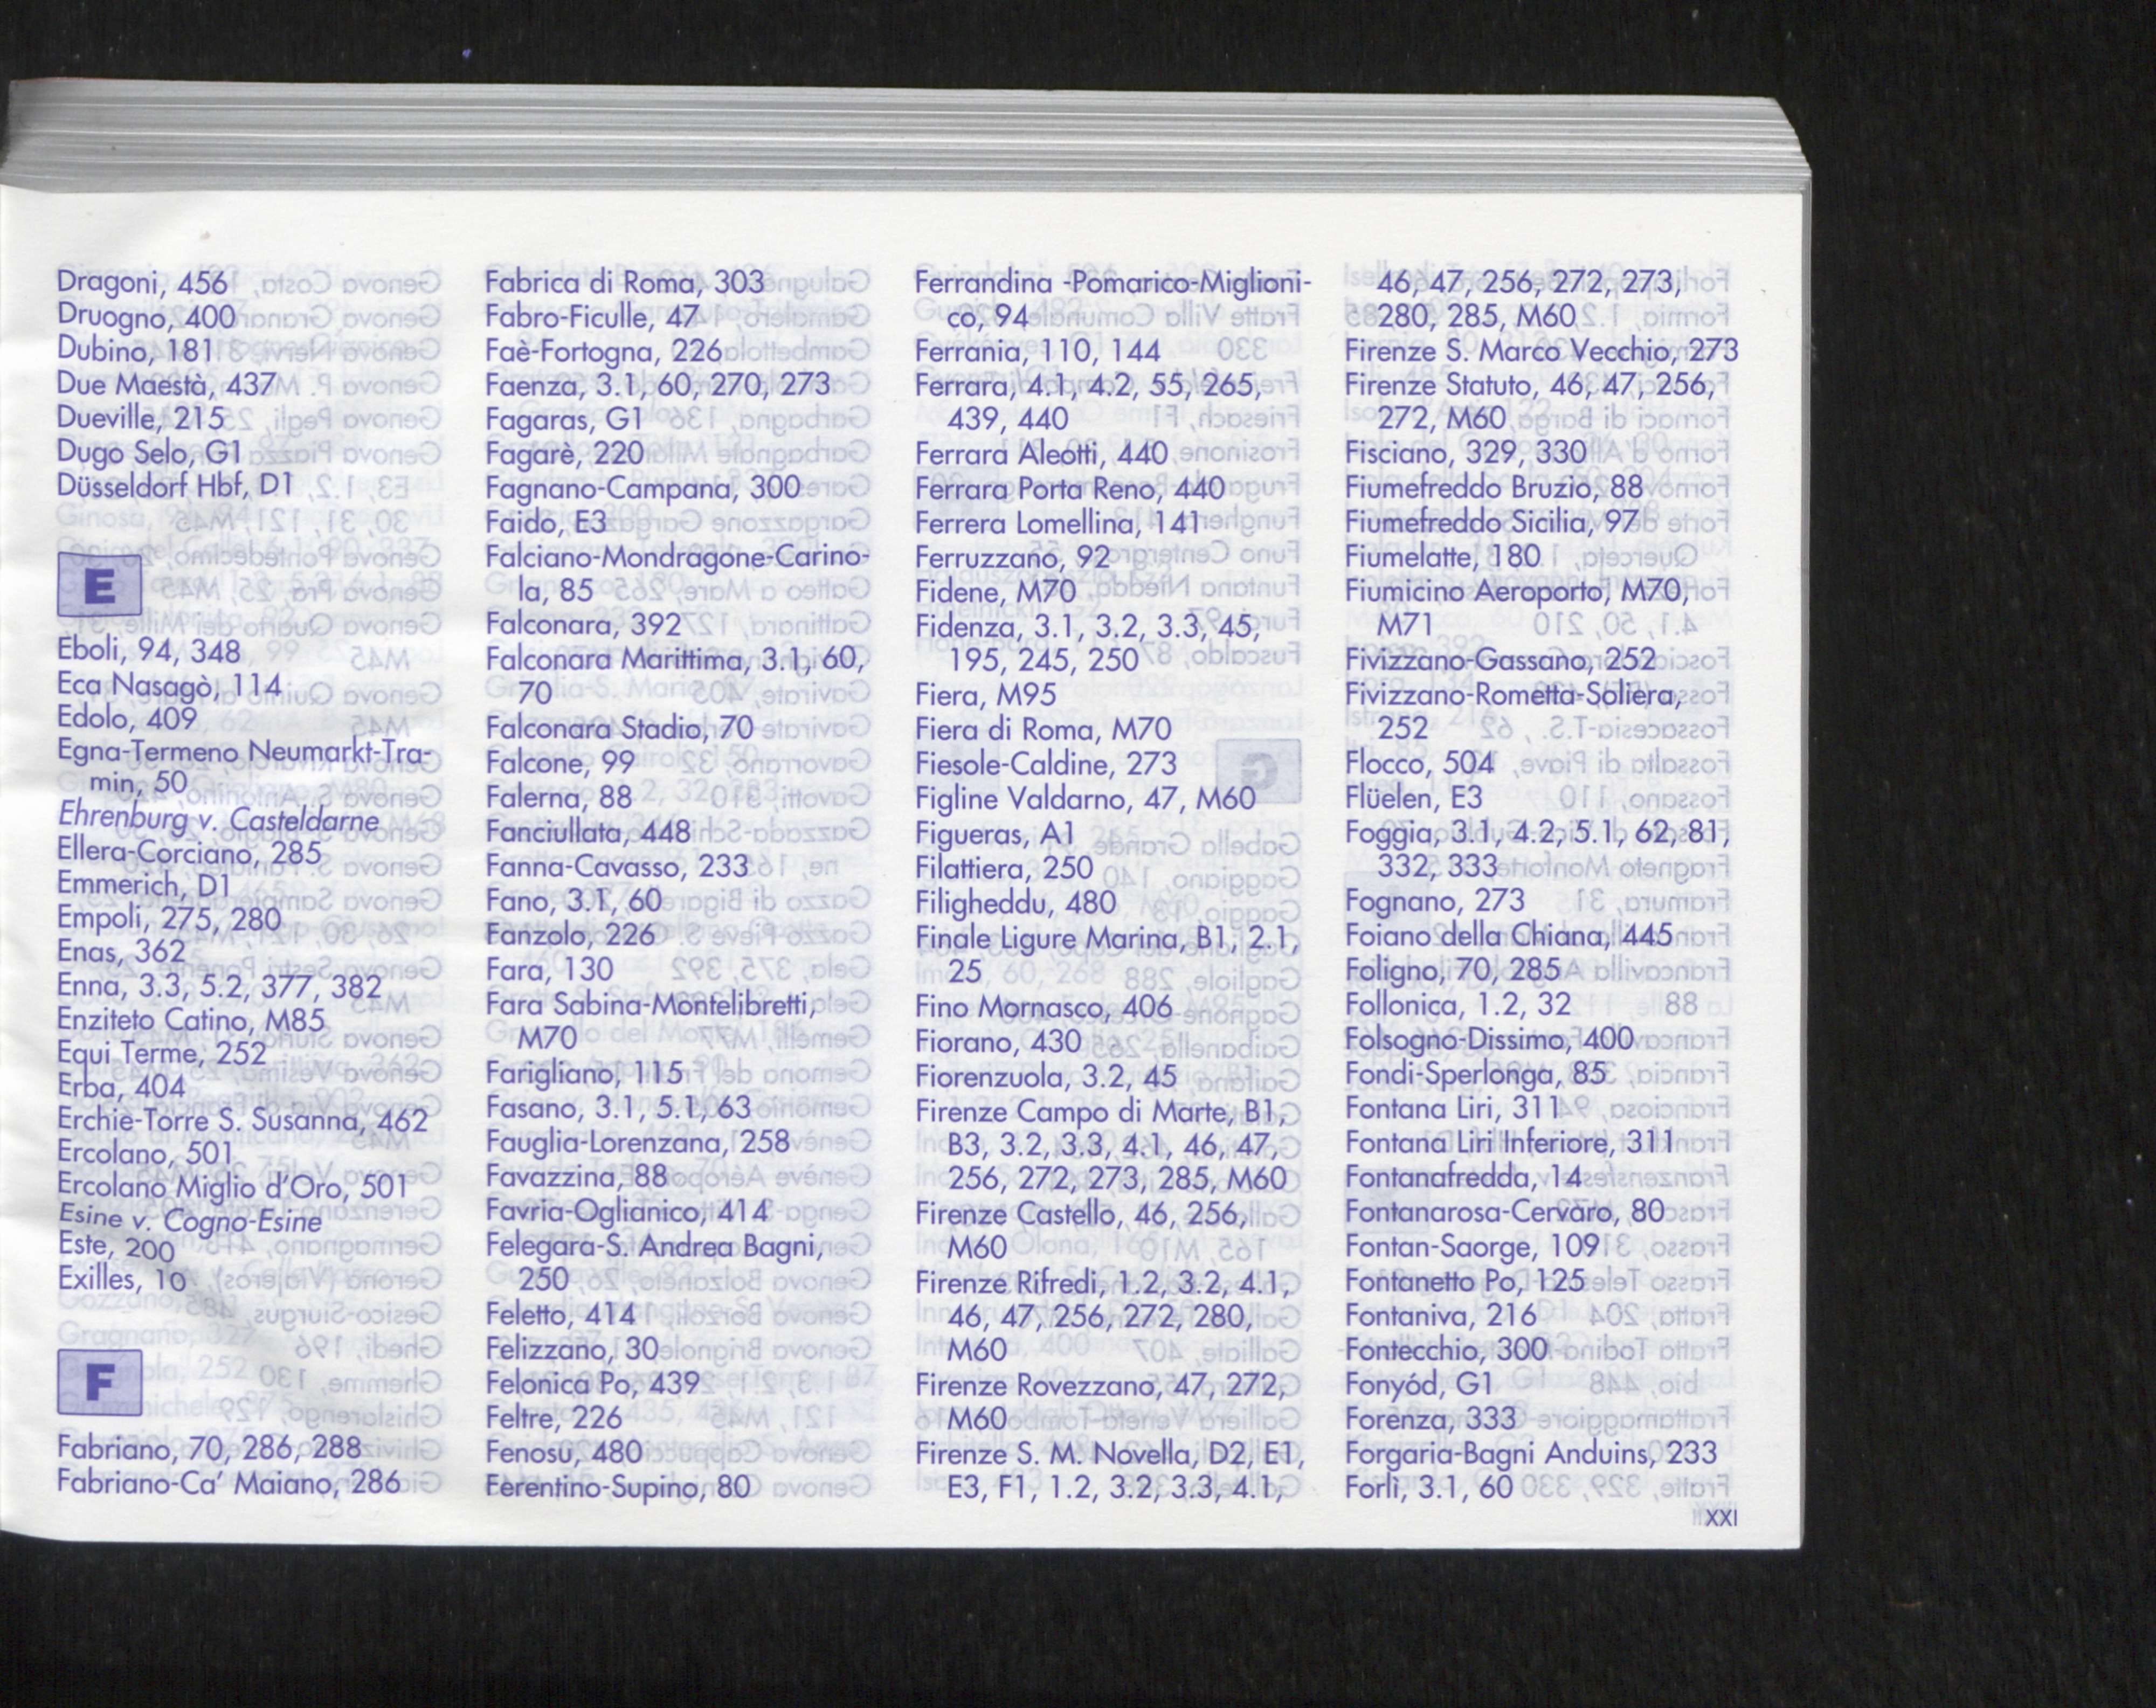 Dragoni, 456
Druogno, 400
Dubino, 181
Due Maestà, 437
Dueville, 215
Dugo Selo, G1
Düsseldorf Hbf, D1
E
Eboli, 94, 348
Eca Nasagò, 114
Edolo, 409
Egna-Termeno Neumarkt-Tra-
min, 50
Ehrenburg v. Casteldarne
Ellera-Corciano, 285
Emmerich, D1
Empoli, 275, 280
Enas, 362
Enna, 3.3, 5.2, 377, 382
Enziteto Catino, M85
Equi Terme, 252
Erba, 404
Erchie-Torre S. Susanna, 462
Ercolano, 501
Ercolano Miglio d'Oro, 501
Esine v. Cogno-Esine
Este, 200
Exilles, 10
F
Fabriano, 70, 286, 288
Fabriano-Ca' Maiano, 286
Fabrica di Roma, 303
Fabro-Ficulle, 47
Faè-Fortogna, 226
Faenza, 3.1, 60, 270, 273
Fagaras, G1
Fagarè, 220
Fagnano-Campana, 300
Faido, E3
Falciano-Mondragone-Carino-
la, 85
Falconara, 392
Falconara Marittima, 3.1, 60,
70
Falconara Stadio, 70
Falcone, 99
Falerna, 88
Fanciullata, 448
Fanna-Cavasso, 233
Fano, 3.1, 60
Fanzolo, 226
Fara, 130
Fara Sabina-Montelibretti,
M70
Farigliano, 115
Fasano, 3.1, 5.1, 63
Fauglia-Lorenzana, 258
Favazzina, 88
Favria-Oglianico, 414
Felegara-S. Andrea Bagni,
250
Feletto, 414
Felizzano, 30
Felonica Po, 439
Feltre, 226
Fenosu, 480
Ferentino-Supino, 80
Ferrandina -Pomarico-Miglioni-
co, 94
Ferrania, 110, 144
Ferrara, 4.1, 4.2, 55, 265,
439, 440
Ferrara Aleotti, 440
Ferrara Porta Reno, 440
Ferrera Lomellina, 141
Ferruzzano, 92
Fidene, M70
Fidenza, 3.1, 3.2, 3.3, 45,
195, 245, 250
Fiera, M95
Fiera di Roma, M70
Fiesole-Caldine, 273
Figline Valdarno, 47, M60
Figueras, A1
Filattiera, 250
Filigheddu, 480
Finale Ligure Marina, B1, 2.1,
25
Fino Mornasco, 406
Fiorano, 430
Fiorenzuola, 3.2, 45
Firenze Campo di Marte, B1,
B3, 3.2, 3.3, 4.1, 46, 47,
256, 272, 273, 285, M60
Firenze Castello, 46, 256,
M60
Firenze Rifredi, 1.2, 3.2, 4.1,
46, 47, 256, 272, 280,
M60
Firenze Rovezzano, 47, 272,
M60
Firenze S. M. Novella, D2, E1,
E3, F1, 1.2, 3.2, 3.3, 4.1,
46, 47, 256, 272, 273,
280, 285, M60
Firenze S. Marco Vecchio, 273
Firenze Statuto, 46, 47, 256,
272, M60
Fisciano, 329, 330
Fiumefreddo Bruzio, 88
Fiumefreddo Sicilia, 97
Fiumelatte, 180
Fiumicino Aeroporto, M70,
M71
Fivizzano-Gassano, 252
Fivizzano-Rometta-Soliera,
252
Flocco, 504
Flüelen, E3
Foggia, 3.1, 4.2, 5.1, 62, 81,
332, 333
Fognano, 273
Foiano della Chiana, 445
Foligno, 70, 285
Follonica, 1.2, 32
Folsogno-Dissimo, 400
Fondi-Sperlonga, 85
Fontana Liri, 311
Fontana Liri Inferiore, 311
Fontanafredda, 14
Fontanarosa-Cervaro, 80
Fontan-Saorge, 109
Fontanetto Po, 125
Fontaniva, 216
Fontecchio, 300
Fonyód, G1
Forenza, 333
Forgaria-Bagni Anduins, 233
Forlì, 3.1, 60
XXI